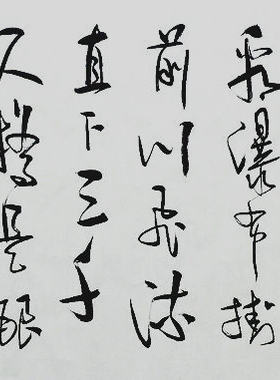 看瀑布掛
前川飛流
直下三千
尺疑是銀